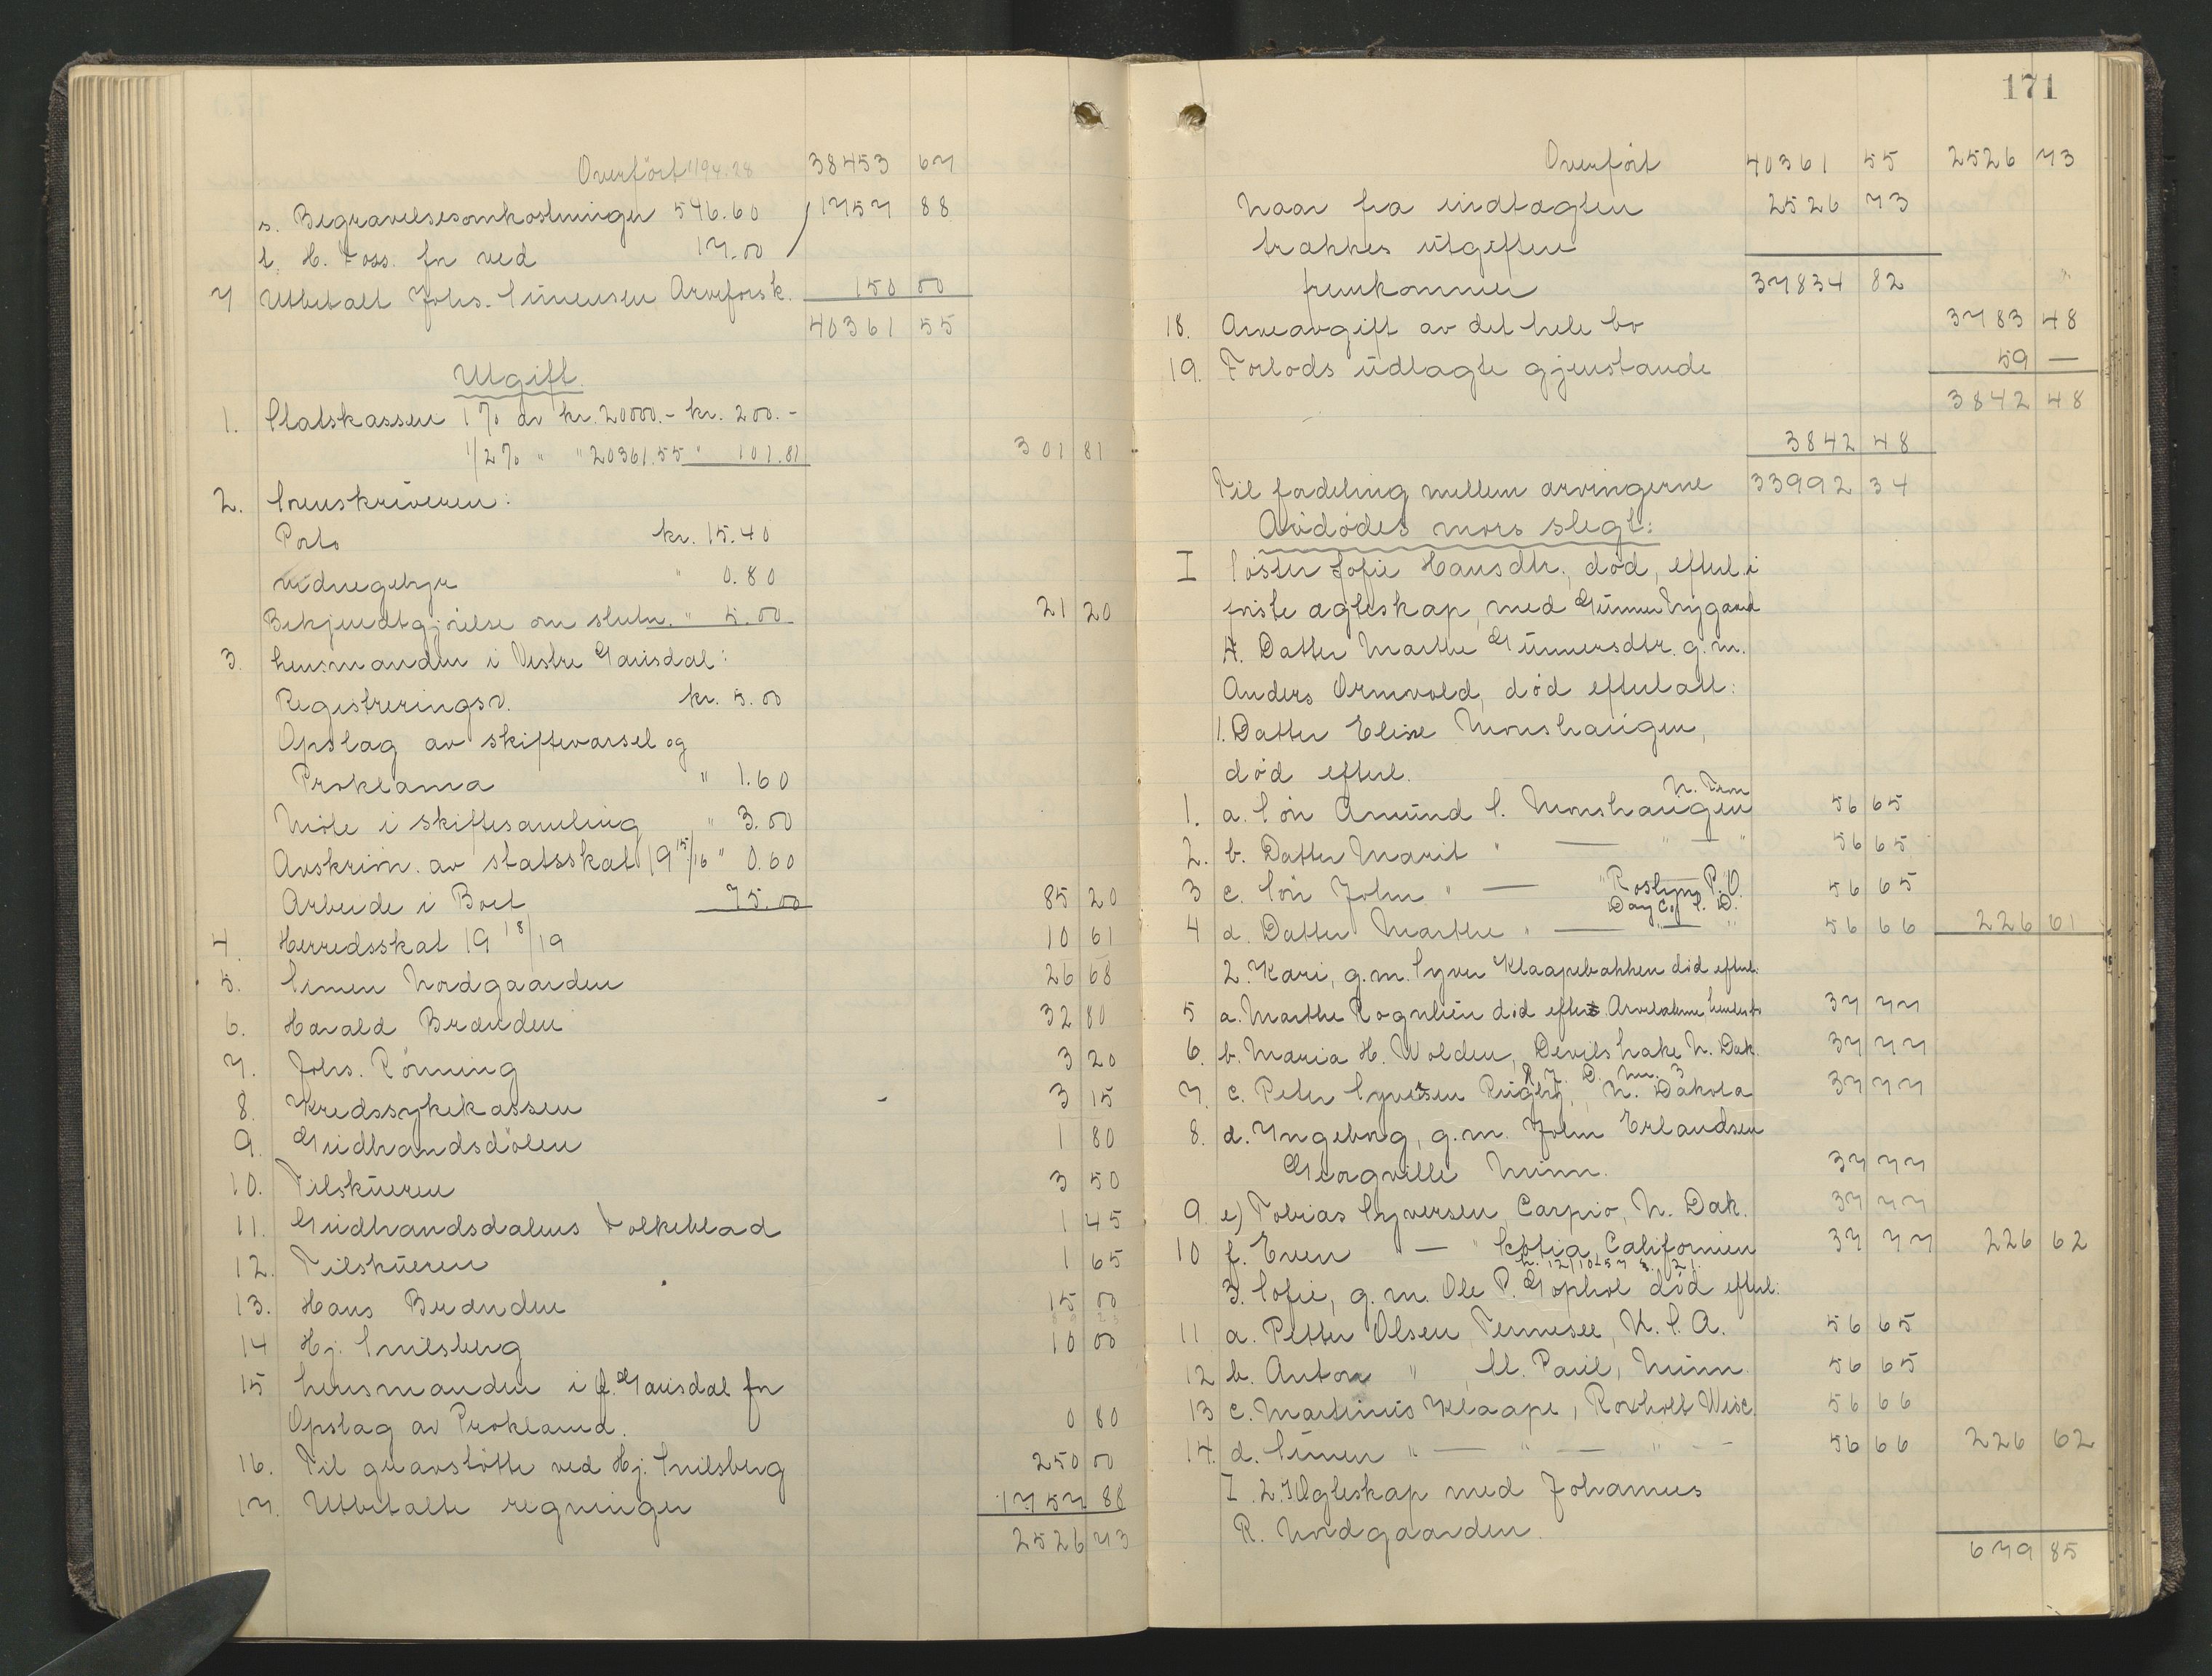 Overført 1194.28 38453 67
s. Begravelsesomkostninger 546.60 1757 88
t. H. Foss. for ved 17.00
7 Utbetalt Johs. Simensen Arveforsk. 150 00
40361 55
Utgift.
1. Statskassen 1% av kr. 20000.- kr. 200.-
1/2% " " 20361.55 " 101.81 301 81
2. Sorenskriveren:
Porto kr. 15.40
vidnegebyr " 0.80
Bekjendtgjørelse om slutn. " 5.00 21 20
3. Lensmanden i Vestre Gausdal:
Registreringsv. kr. 5.00
Opslag av skiftevarsel og
Proklama " 1.60
Møte i skiftesamling " 3.00
Avskrivn. av statsskat 19 15/16 " 0.60
Arbeide i Boet 75.00 85 20
4. Herredsskat 19 18/19 10 61
5. Simen Nordgaarden 26 68
6. Harald Brænden 32 80
7. Johs. Rønning 3 20
8. Kredssykekassen 3 15
9. Gudbrandsdølen 1 80
10. Tilskueren 3 50
11. Gudbrandsdalens Folkeblad 1 45
12. Tilskueren 1 65
13. Hans Brænden 15 00
14 Hj. Smilsberg 10 00
15 Lensmanden i Ø. Gausdal for
Opslag av Proklama. 0 80
16. Til gravstøtte ved Hj. Smilsberg 250 00
17. Utbetalte regninger 1757 88
2526 73
171
Overført 40361 55 2526 73
Naar fra indtægten 2526 73
trækkes utgiften
fremkommer 37834 82
18. Arveavgift av det hele bo 3783 48
19. Forlods utlagte gjenstande 59 —
3842 48
3842 48
Til fordeling mellem arvingerne 33992 34
Avdødes mors slegt:
I Søster Sofie Hansdtr., død, efterl. i
første ægteskap, med Gunner Nygaard
A. Datter Marthe Gunnersdtr. g.m.
Anders Ormvold, død efterlatt:
1. Datter Elise Monshaugen,
død efterl. N. Fron
1. a. Søn Amund S. Monshaugen 56 65
2. b. Datter Marit " — " — " 56 65
3 c. Søn John " — " Roslyn P.O. 56 65
Day Co. S. D.
4 d. Datter Marthe " — " — " 56 66 226 61
2. Kari, g.m. Syver Klaapebakken død efterl:
5 a. Marthe Rognlien død 37 77
6. b. Maria H. Wolden, Devils Lake N. Dak. 37 77
R. F. D. No. 3
7. c. Peter Syversen Rugby, N. Dakota 37 77
8. d. Ingeborg, g.m. John Erlandsen
Georgville Minn. 37 77
9. e) Tobias Syversen, Carpio, N. Dak. 37 77
10 f. Even — " Scotia, Californien 37 77 226 62
3. Sofie, g.m. Ole P. Gophol død efterl:
11 a. Petter Olsen, Tennesee, U.S.A. 56 65
12 b. Anton " , St. Paul, Minn. 56 65
13 c. Martinus Klaape, Roxholt Wisc. 56 66
14. d. Simen " — " — " — 56 66 226 62
I. 2. Ægteskap med Johannes
R. Nordgaarden.
679 85